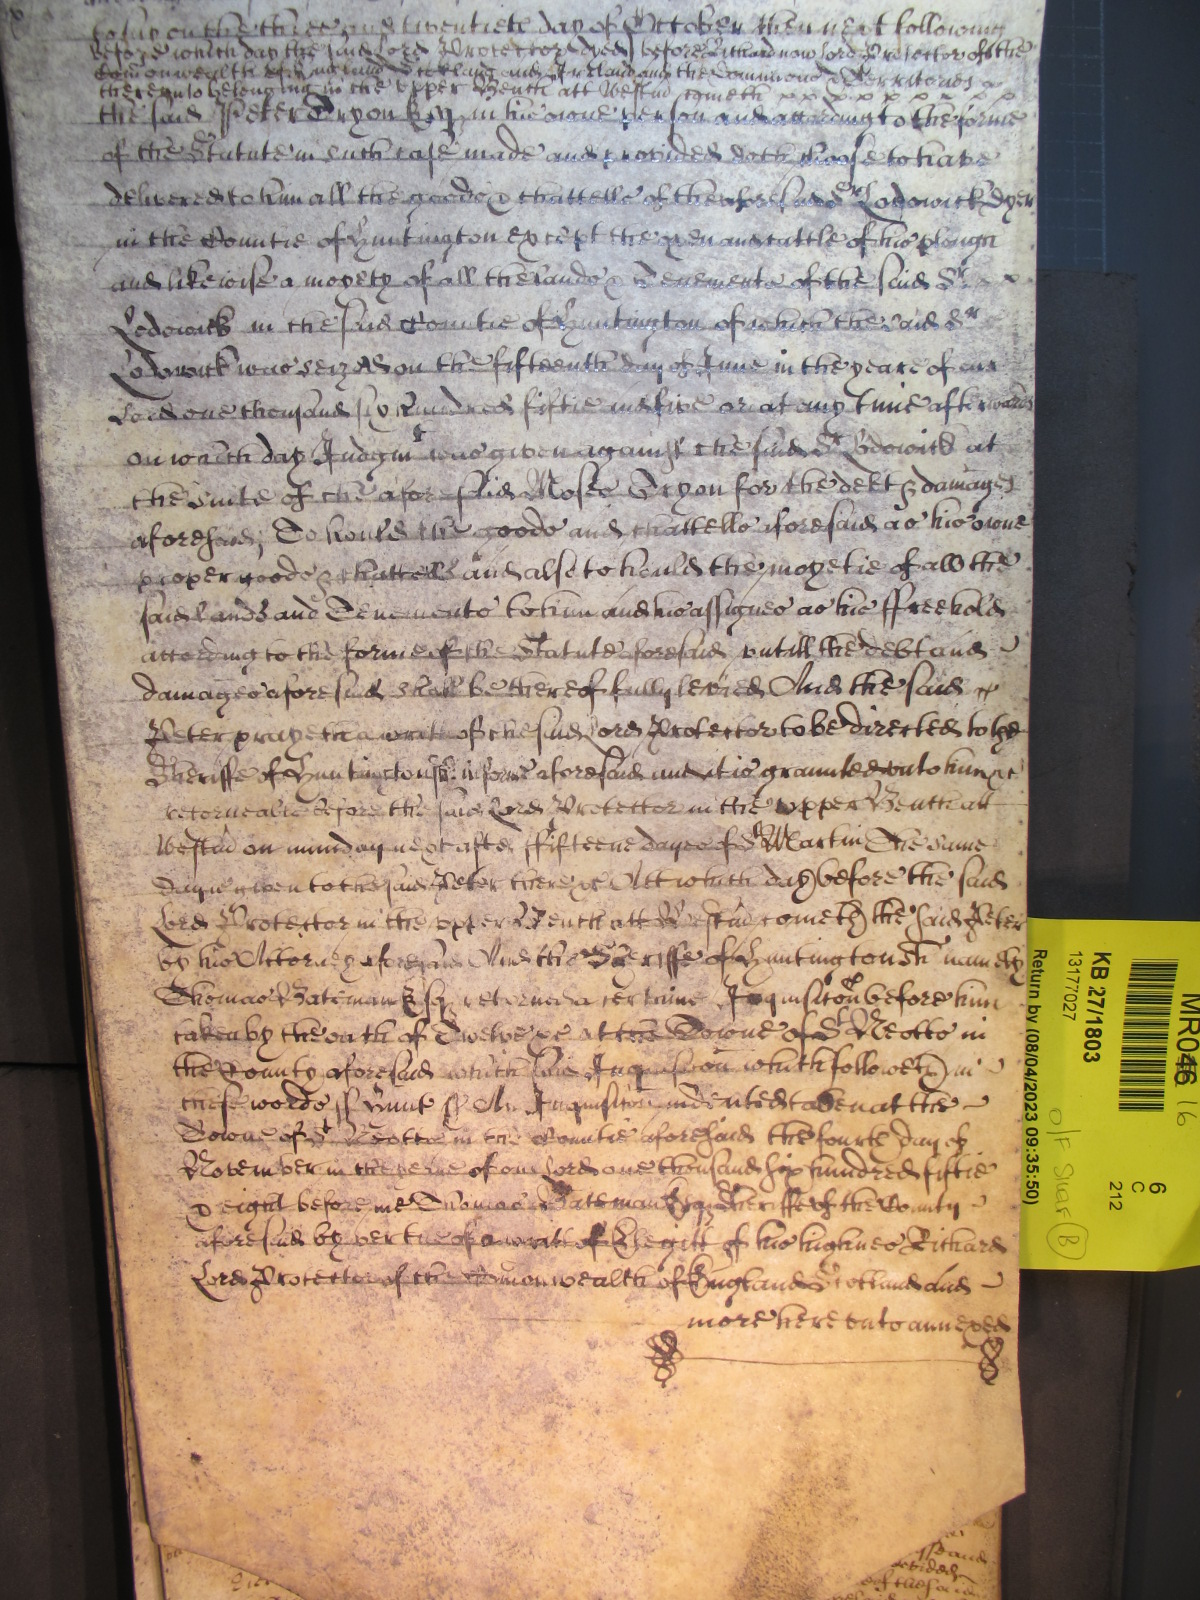 to say on the three and twentieth day of October then next following
before which day the said Lord Protector dyed before Richard now Lord Protector of the
Comonwealth of England Scotland and Ireland and the Dominions & Territories
thereunto belonging in the Upper Bench att Westm cometh x x x x x x x
the said Peter Tryon Esq in his owne person and according to the forme
of the Statute in such case made and provided doth choose to have
delivered to him all the goods & chattells of the aforesaid Sr Lodowick Dyer
in the Countie of Huntington except the oxen and cattle of his plough
and likewise a moyety of all the lands & Tenements of the said Sr
Lodowick in the said Countie of Huntington of which the said Sr
Lodowick was seized on the fifteenth day of June in the yeare of our
Lord one thousand six hundred fiftie and five or at any time afterwards
on which day Judgmt was given against the said Sr Lodowick at
the suite of the aforesaid Moses Tryon for the debt & damages
aforesaid; To hould the goods and chattells aforesaid as his owne
proper goods & chattells and also to hould the moyetie of all the
said lands and Tenements to him and his assignes as his ffreehold
according to the forme of the Statute aforesaid untill the debt and
damages aforesaid shall be thereof fully levied And the said
Peter prayeth a writt of the said Lord Protector to be directed to the
Sheriffe of Huntingtonsh in forme aforesaid and it is graunted unto him &c
retornealle before the said Lord Protector in the upper Bench att
Westm on munday next after ffifteene dayes of St Martin The same
day is given to the said Peter there &c Att which day before the said
Lord Protector in the upper Bench att Westm cometh the said Peter
by his Attorney aforesaid And the Sheriffe of Huntingtonsh namely
Thomas Bateman Esq retorned a certaine Inquisicon before him
taken by the oath of Twelve &c at the Towne of St Neotts in
the County aforesaid which said Inquisicon which followeth in
these words ss Hunt ss An Inquisicon indented taken at the
Towne of St Neotts in the Countie aforesaid the fourth day of
November in the yeare of our Lord one thousand six hundred fiftie
& eight before me Thomas Bateman Esq Sheriffe of the County
aforesaid by vertue of a writt of Elegitt of his highnes Richard
Lord Protector of the Comonwealth of England Scotland and
more here unto annexed
MR046 16
6
C
212
KB 27/1803
13177027
Return by (08/04/2023 09:35:50)
O/F Shelf B